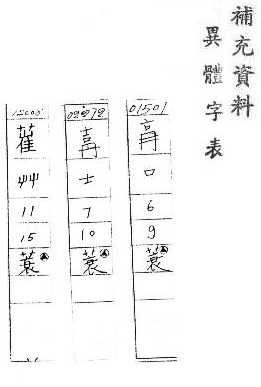 補充資料
異體字表
01501
口
6
9
蓑
士
7
10
蓑
艸
11
15
蓑